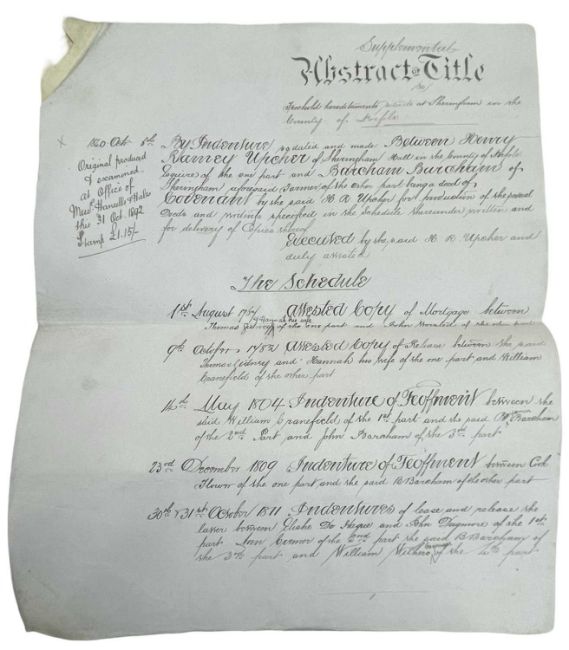 Supplemental
Abstract of Title
to
Freehold hereditaments situate at Sheringham in the
County of Norfolk
x 1840 Oct. 5th By Indenture so dated and made Between Henry
Ramey Upcher of Sheringham Hall in the County of Norfolk
Esquire of the one part and Barcham Burcham of
Sheringham aforesaid Farmer of the other part being a deed of
Covenant by the said H R Upcher for production of the several
Deeds and probate specified in the Schedule thereunder written and
for delivery of Copies thereof
Executed by the said H. R. Upcher and
duly attested
Original produced
& examined
at Office of
Mess
this 31 Oct. 1892
Stamp £1.15/-
The Schedule
1st August 1757 Attested Copy of Mortgage between
Thomas of the one part and John of the other part
9th October 1782 Attested Copy of Release between the said
Thomas and Hannah his wife of the one part and William
Cranefield of the other part
14th May 1804 Indenture of Feoffment between the
said William Cranefield of the 1st part and the said
of the 2nd Part and John Barcham of the 3rd part
23rd December 1809 Indenture of Feoffment between
of the one part and the said B Barcham of the other part
30th & 31st October 1811 Indentures of lease and release the
latter between and John of the 1st
part of the 2nd part the said B Barcham of
the 3rd part and William of the 4th part